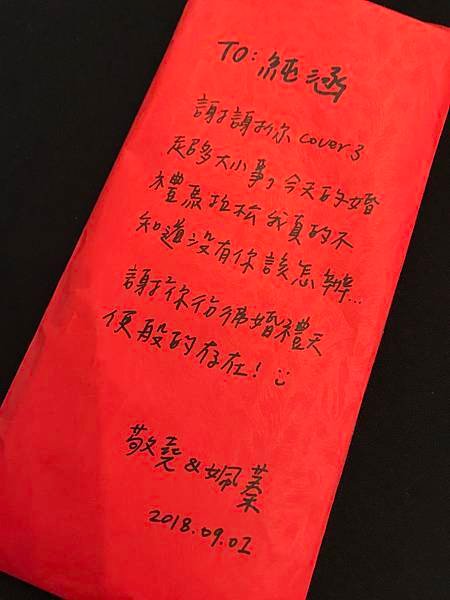 TO: 純涵
謝謝你 cover了
超多大小事,今天的婚
禮馬拉松我真的不
知道沒有你該怎辦...
謝謝你彷彿婚禮天
使般的存在!
敬堯 & 姵蓁
2018.09.02